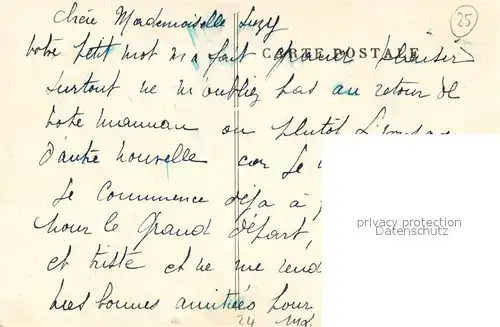 Chère Mademoiselle Suzy
25
votre petit mot m'a fait grand plaisir
CARTE POSTALE
surtout ne m'oubliez pas au retour de
votre maman ou plutôt
d'autre nouvelle car je
je commence déja à
pour le Grand départ,
privacy protection
Datenschutz
et triste et ne me rend
mes bonnes amitiés pour
24